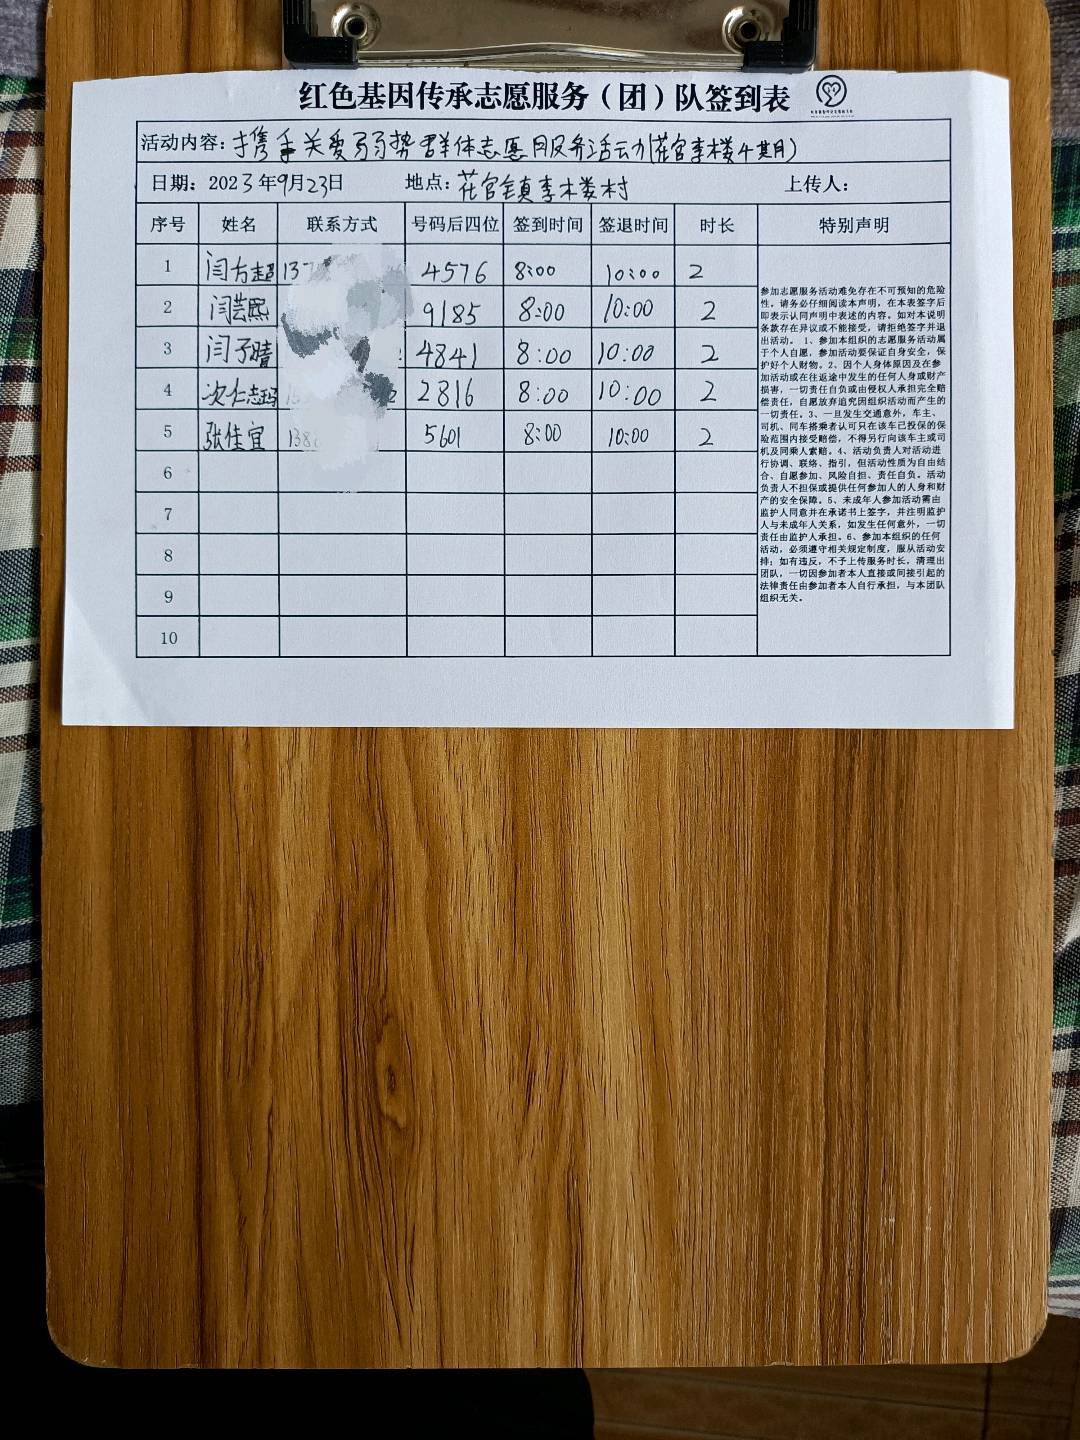 红色基因传承志愿服务（团）队签到表
活动内容：携手关爱弱势群体志愿服务活动(花官李楼十期)
日期：2023年9月23日 地点：花官镇李楼村 上传人：
序号 姓名 联系方式 号码后四位 签到时间 签退时间 时长 特别声明
1 闫方超 137 4576 8:00 10:00 2
2 闫芸熙 9185 8:00 10:00 2
3 闫予晴 4841 8:00 10:00 2
4 次仁志玛 2816 8:00 10:00 2
5 张佳宜 138 5601 8:00 10:00 2
6
7
8
9
10
参加志愿服务活动难免存在不可预知的危险
性。请务必仔细阅读本声明，在本表签字后
即表示认同声明中表述的内容。如对本说明
条款存在异议或不能接受，请拒绝签字并退
出活动。 1、参加本组织的志愿服务活动属
于个人自愿，参加活动要保证自身安全，保
护好个人财物。2、因个人身体原因及在参
加活动或在往返途中发生的任何人身或财产
损害，一切责任自负或由侵权人承担完全赔
偿责任，自愿放弃追究因组织活动而产生的
一切责任。3、一旦发生交通意外，车主、
司机、同车搭乘者认可只在该车已投保的保
险范围内接受赔偿，不得另行向该车主或司
机及同乘人索赔。4、活动负责人对活动进
行协调、联络、指引，但活动性质为自由结
合、自愿参加、风险自担、责任自负。活动
负责人不担保或提供任何参加人的人身和财
产的安全保障。5、未成年人参加活动需由
监护人同意并在承诺书上签字，并注明监护
人与未成年人关系，如发生任何意外，一切
责任由监护人承担。6、参加本组织的任何
活动，必须遵守相关规定制度，服从活动安
排；如有违反，不予上传服务时长，清理出
团队，一切因参加者本人直接或间接引起的
法律责任由参加者本人自行承担，与本团队
组织无关。